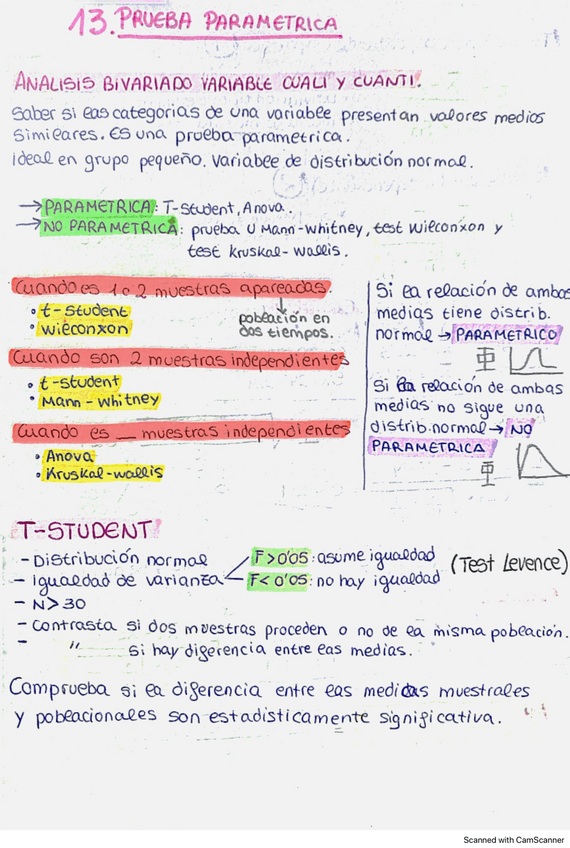 13. PRUEBA PARAMETRICA
ANALISIS BIVARIADO VARIABLE CUALI Y CUANTI.
Saber si las categorias de una variable presentan valores medios
similares. ES una prueba parametrica.
ideal en grupo pequeño. Variable de distribución normal.
→ PARAMETRICA: T-Student, Anova.
→ NO PARAMETRICA: prueba U Mann-Whitney, test Wilconxon y
test Kruskal-Wallis.
Cuando es 1 o 2 muestras apareadas.
• t-student
• wilconxon
↓
población en
dos tiempos.
Cuando son 2 muestras independientes
• t-student
• Mann-Whitney
Cuando es __ muestras independientes
• Anova
• Kruskal-Wallis
Si la relación de ambas
medias tiene distrib.
normal → PARAMETRICO
Si la relación de ambas
medias no sigue una
distrib. normal → NO
PARAMETRICA
T-STUDENT
- Distribución normal
- igualdad de varianza
F > 0'05: asume igualdad
F < 0'05: no hay igualdad
(Test Levence)
- N > 30
- Contrasta si dos muestras proceden o no de la misma población.
- " si hay diferencia entre las medias.
Comprueba si la diferencia entre las medidas muestrales
y poblacionales son estadisticamente significativa.
Scanned with CamScanner